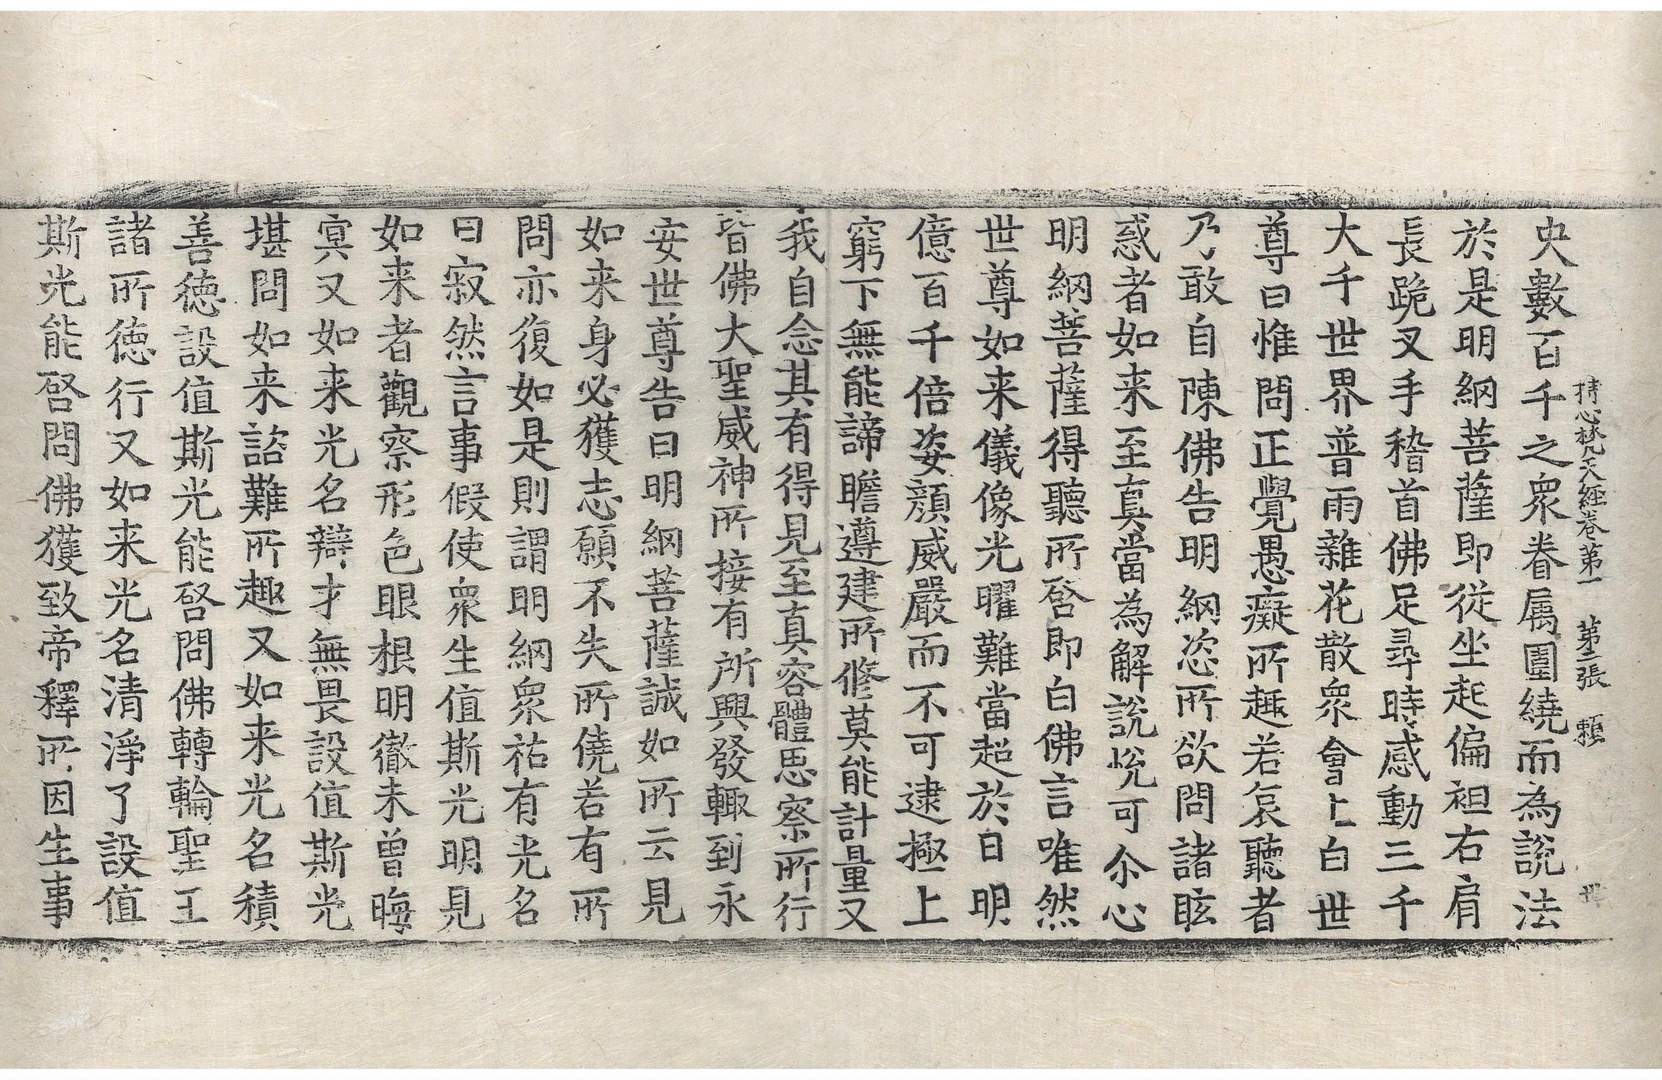 持心梵天經卷第一 第三張 賴
央數百千之眾眷属圍繞而為說法
於是明網菩薩即從坐起偏袒右肩
長跪叉手稽首佛足尋時感動三千
大千世界普雨雜花散眾會上白世
尊曰惟問正覺愚癡所趣若哀聽者
乃敢自陳佛告明網恣所欲問諸眩
惑者如来至真當為解說悅可尒心
明網菩薩得聽所啓即白佛言唯然
世尊如来儀像光曜難當超於日明
億百千倍姿顏威嚴而不可逮極上
窮下無能諦瞻遵建所修莫能計量又
我自念其有得見至真容體思察所行
皆佛大聖威神所接有所興發輙到永
安世尊告曰明網菩薩誠如所云見
如来身必獲志願不失所僥若有所
問亦復如是則謂明網眾祐有光名
曰寂然言事假使眾生值斯光明見
如来者觀察形色眼根明徹未曾晦
冥又如来光名辯才無畏設值斯光
堪問如来諮難所趣又如来光名積
善德設值斯光能啓問佛轉輪聖王
諸所德行又如来光名清淨了設值
斯光能啓問佛獲致帝釋所因生事